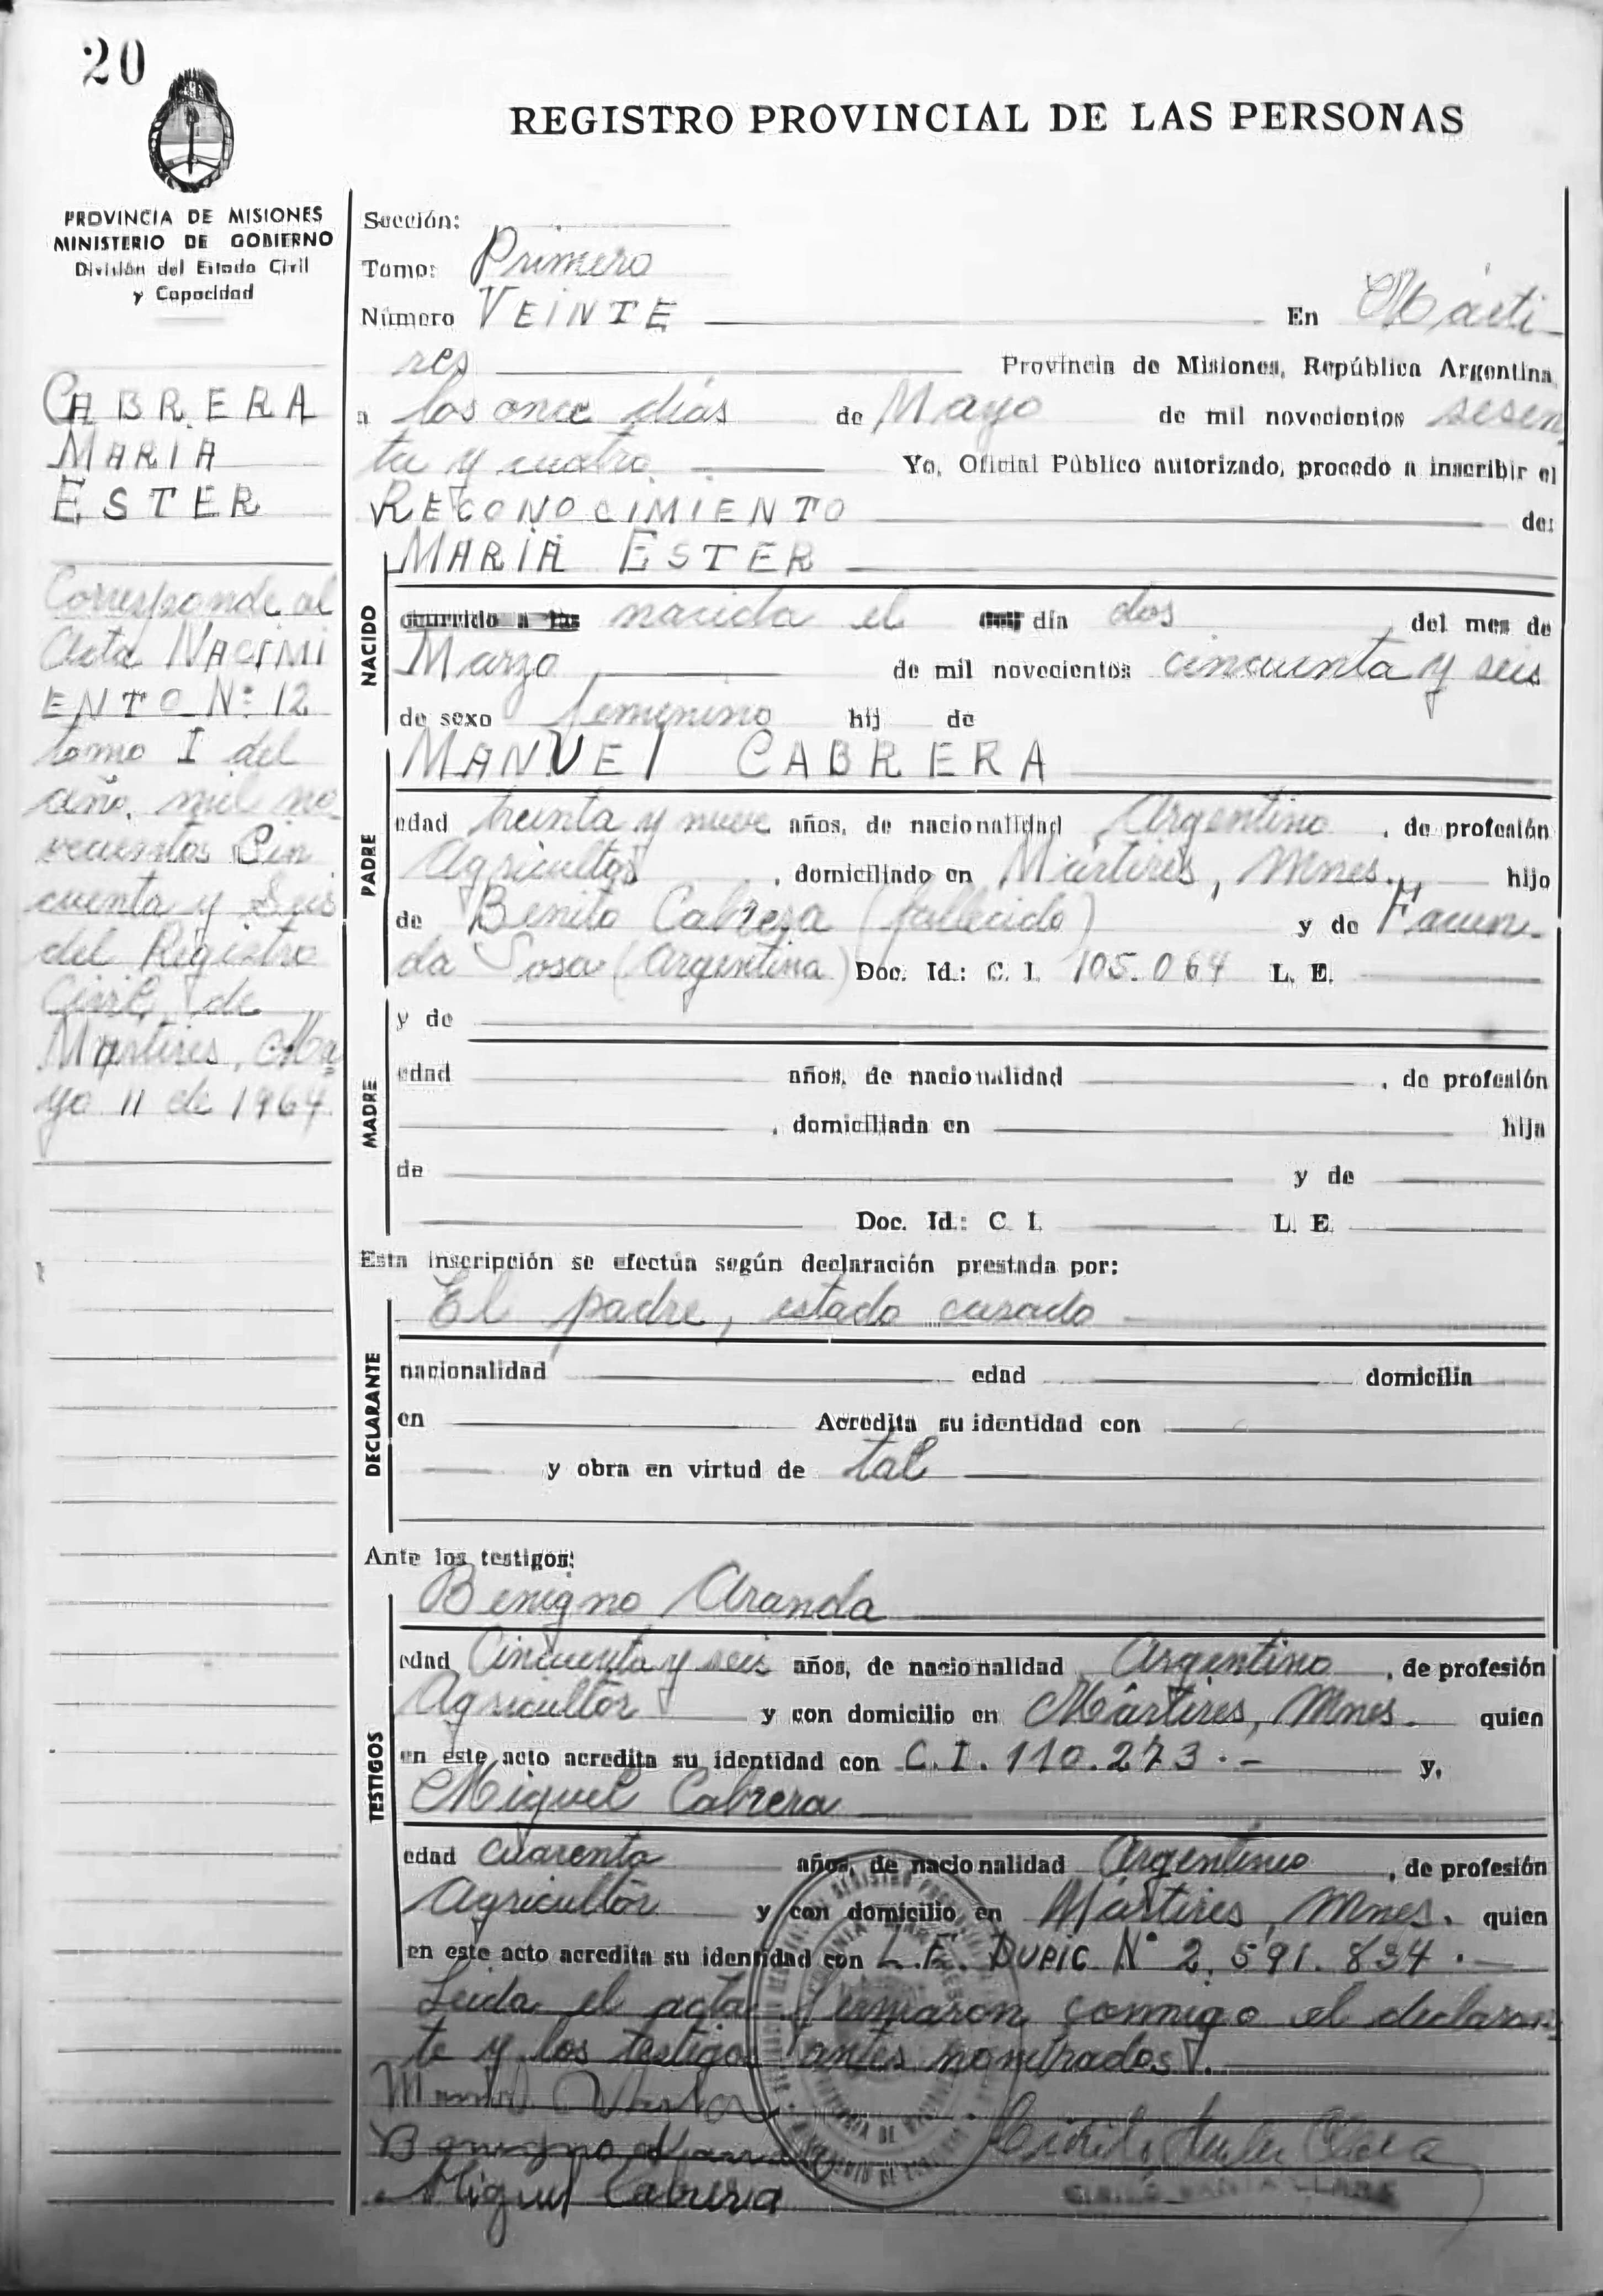 20
REGISTRO PROVINCIAL DE LAS PERSONAS
PROVINCIA DE MISIONES
MINISTERIO DE GOBIERNO
División del Estado Civil
y Capacidad
CABRERA
MARIA
ESTER
Corresponde al
Acta NACIMI
ENTO Nº 12
tomo I del
año, mil no
vecientos Cin
cuenta y Seis
del Registro
Civil de
Mártires, Ma
yo 11 de 1964.
Sección:
Tomo: Primero
Número VEINTE En Márti
res Provincia de Misiones, República Argentina
a los once días de Mayo de mil novecientos sesen
ta y cuatro Yo, Oficial Público autorizado, procedo a inscribir el
RECONOCIMIENTO de:
MARIA ESTER
NACIDO
ocurrido a las nacida el día dos del mes de
Marzo de mil novecientos cincuenta y seis
de sexo femenino hij de
MANUEL CABRERA
PADRE
edad treinta y nueve años, de nacionalidad Argentino, de profesión
Agricultor, domiciliado en Mártires, Mnes. hijo
de Benito Cabrera (fallecido) y de Facun-
da Sosa (Argentina) Doc. Id.: C. I. 105.064 L. E.
y de
MADRE
edad años, de nacionalidad , de profesión
, domiciliada en hija
de y de
Doc. Id.: C. I. L. E.
Esta inscripción se efectúa según declaración prestada por:
El padre, estado casado
DECLARANTE
nacionalidad edad domicilia
en Acredita su identidad con
y obra en virtud de tal
Ante los testigos:
Benigno Aranda
TESTIGOS
edad Cincuenta y seis años, de nacionalidad Argentino, de profesión
Agricultor y con domicilio en Mártires, Mnes. quien
en este acto acredita su identidad con C.I. 110.273.- y,
Miguel Cabrera
edad cuarenta años, de nacionalidad Argentino, de profesión
Agricultor y con domicilio en Mártires, Mnes. quien
en este acto acredita su identidad con L.E. DUPLIC. Nº 2.591.834.-
Leida el acta firmaron conmigo el declaran
te y los testigos antes nombrados.
Benigno Aranda
Miguel Cabrera